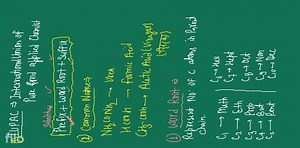 IUPAC → International Union of
Pure And Applied Chemist
Prefix + Word Root + Suffix
② Common Names →
NH₂CONH₂ → Urea
HCOOH → Formic Acid
CH₃COOH → Acetic Acid (Vinegar)
① Word Root →
Represent No of C atoms in Parent
chain
C₁ → Meth
C₂ → Eth
C₃ → Prop
C₄ → But
C₅ → Pent
C₆ → Hex
C₇ → Hept
C₈ → Oct
C₉ → Non
C₁₀ → Dec